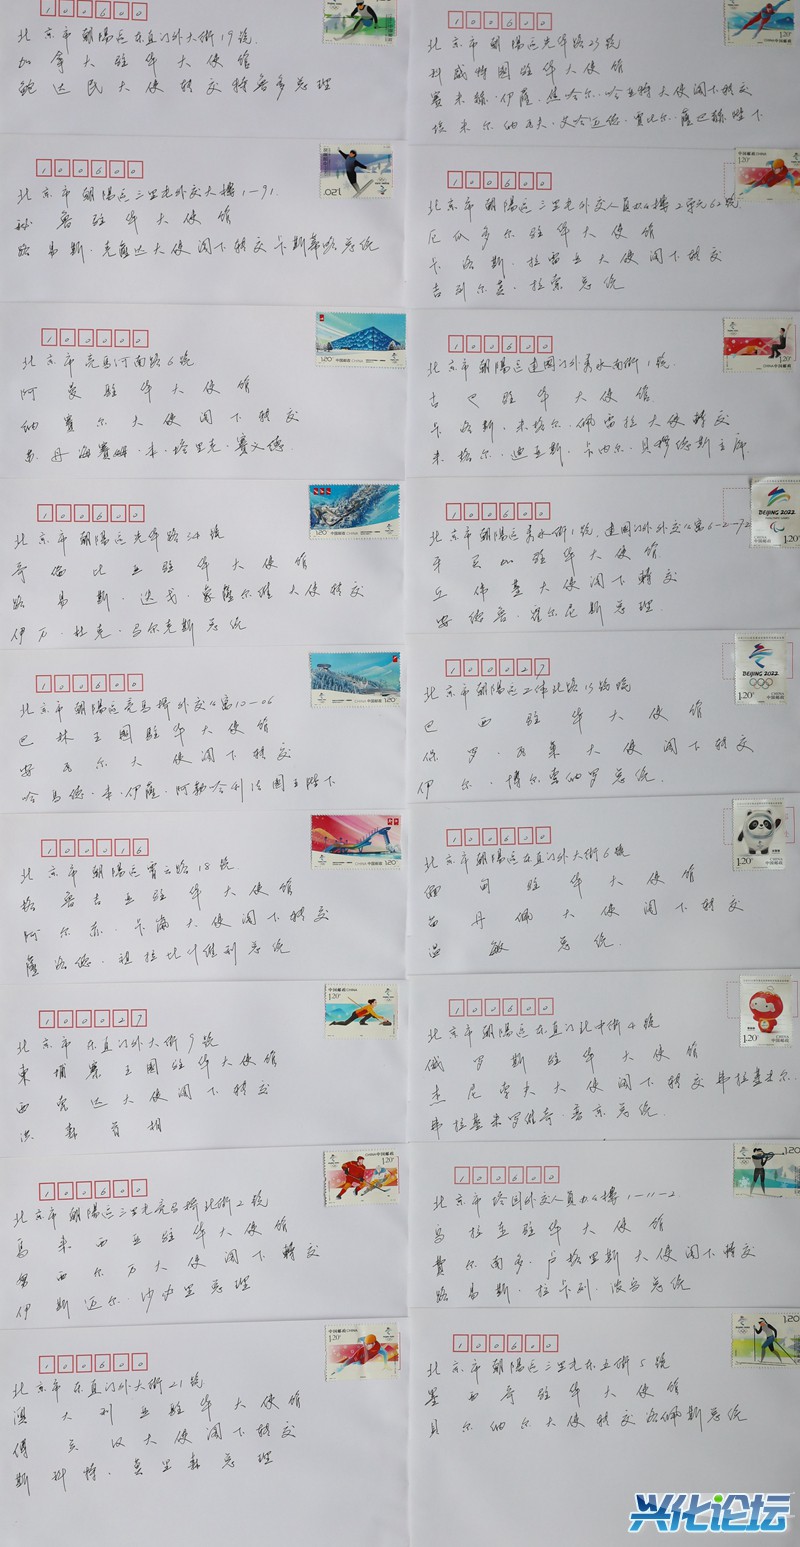 100600
北京市朝陽區东直门外大街19號
加拿大驻华大使馆
鲍达民大使转交特鲁多总理
100600
北京市朝陽區三里屯外交大樓1-91
秘鲁驻华大使馆
路易斯·克萨达大使阁下转交卡斯蒂略总统
100600
北京市亮马河南路6號
阿曼驻华大使馆
纳赛尔大使阁下转交
苏丹海赛姆·本·塔里克·赛义德
100600
北京市朝陽區光华路34號
哥倫比亚驻华大使馆
路易斯·迭戈·蒙薩尔维大使转交
伊万·杜克·马尔克斯总统
100600
北京市朝陽區亮马桥外交公寓10-06
巴林王國驻华大使馆
安瓦尔大使阁下转交
哈马德·本·伊薩·阿勒哈利法國王陛下
100016
北京市朝陽區霄云路18號
格鲁吉亚驻华大使馆
阿尔苏·卡瀚大使阁下转交
薩洛德·祖拉比什维利总统
100027
北京市东直门外大街9號
柬埔寨王國驻华大使馆
西宪达大使阁下转交
洪森首相
100600
北京市朝陽區三里屯亮马桥北街2號
马来西亚驻华大使馆
努西尔万大使阁下轉交
伊斯迈尔·沙必里总理
100600
北京市东直门外大街21號
澳大利亚驻华大使馆
傅关汉大使阁下转交
斯科特·莫里森总理
100600
北京市朝陽區光华路23號
科威特國驻华大使馆
赛米赫·伊薩·焦哈尔·哈亚特大使阁下转交
埃米尔纳瓦夫·艾哈迈德·贾比尔·薩巴赫陛下
100600
北京市朝陽區三里屯外交人員办公樓2單元62號
厄瓜多尔驻华大使馆
卡洛斯·拉雷亚大使阁下转交
吉列尔莫·拉索总统
100600
北京市朝陽區建國门外秀水南街1號
古巴驻华大使馆
卡洛斯·米格尔·佩雷拉大使轉交
米格尔·迪亚斯·卡内尔·貝穆德斯主席
100600
北京市朝陽區秀水街1號建國门外外交公寓6-2-72
牙买加驻华大使馆
丘伟基大使阁下轉交
安德鲁·霍尔尼斯总理
100027
北京市朝陽區工体北路13號院
巴西驻华大使馆
保罗·瓦莱大使阁下转交
伊尔·博尔索纳罗总统
100600
北京市朝陽區东直门外大街6號
缅甸驻华大使馆
苗丹佩大使阁下转交
温敏总统
100600
北京市朝陽區东直门北中街4號
俄罗斯驻华大使馆
杰尼索夫大使阁下转交弗拉基米尔
弗拉基米罗维奇·普京总统
100600
北京市塔园外交人員办公樓1-11-2
乌拉圭驻华大使馆
費尔南多·卢格里斯大使阁下轉交
路易斯·拉卡列·波乌总统
100600
北京市朝陽區三里屯东五街5號
墨西哥驻华大使馆
貝尔纳尔大使转交洛佩斯总统
中国邮政 CHINA
1.20
BEIJING 2022
兴化论坛